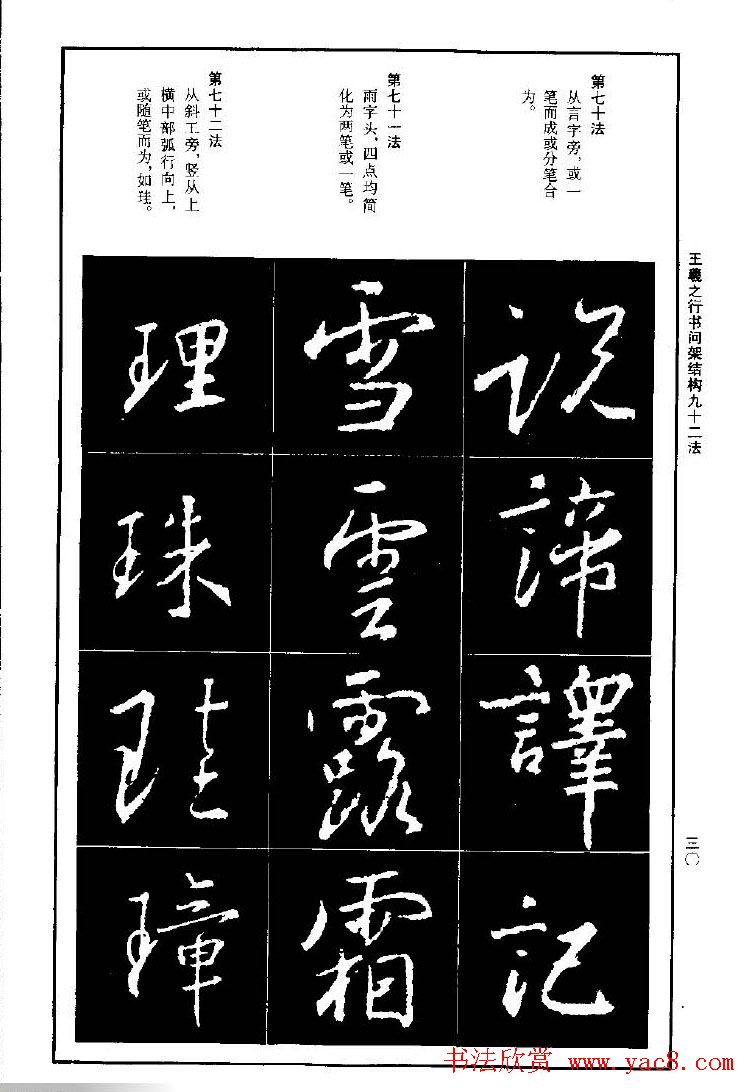 王羲之行书间架结构九十二法
三〇
第七十法
从言字旁，或一
笔而成或分笔合
为。
第七十一法
雨字头、四点均简
化为两笔或一笔。
第七十二法
从斜工旁，竖从上
横中部弧行向上，
或随笔而为，如珪。
说
諦
譯
記
雪
雲
露
霜
理
珠
珪
璋
书法欣赏 www.yac8.com